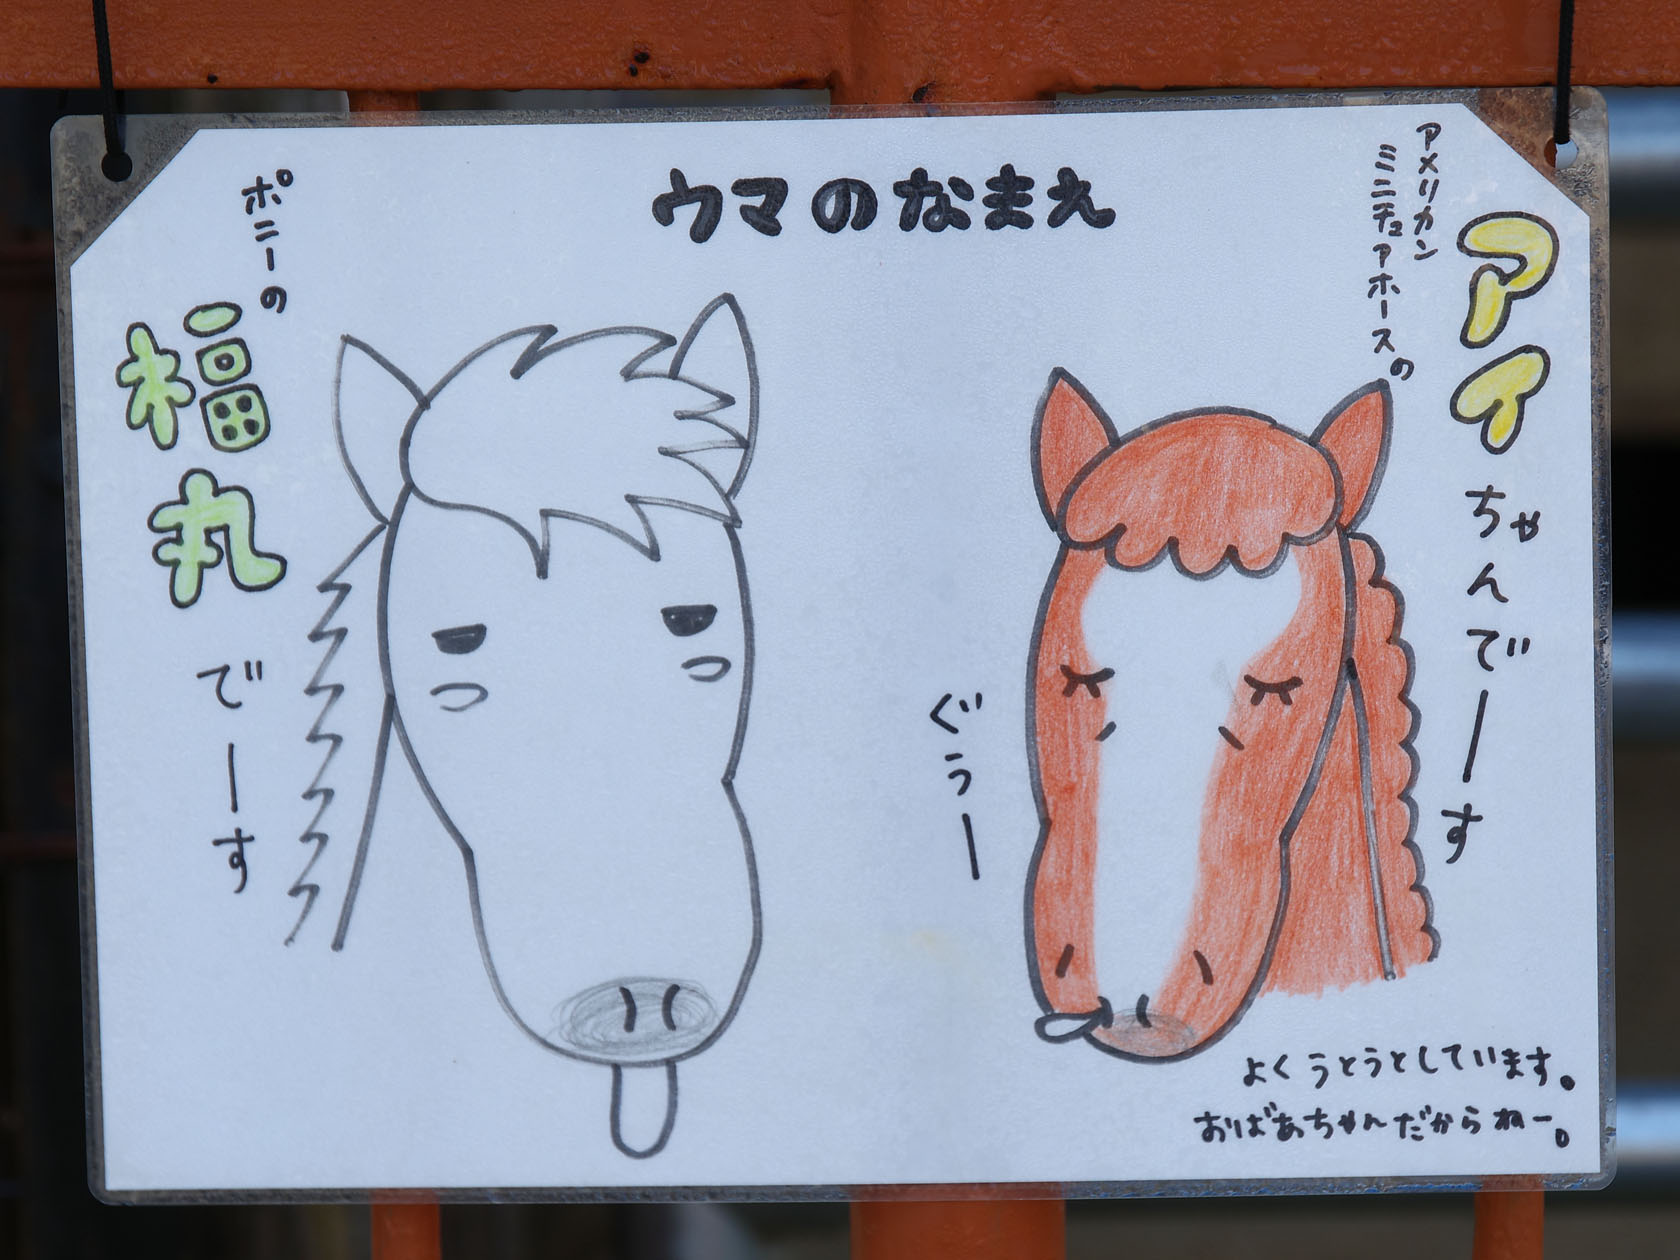 ウマのなまえ
アメリカン
ミニチュアホースの
アイちゃんでーす
ぐぅー
よくうとうとしています。
おばあちゃんだからねー。
ポニーの
福丸でーす